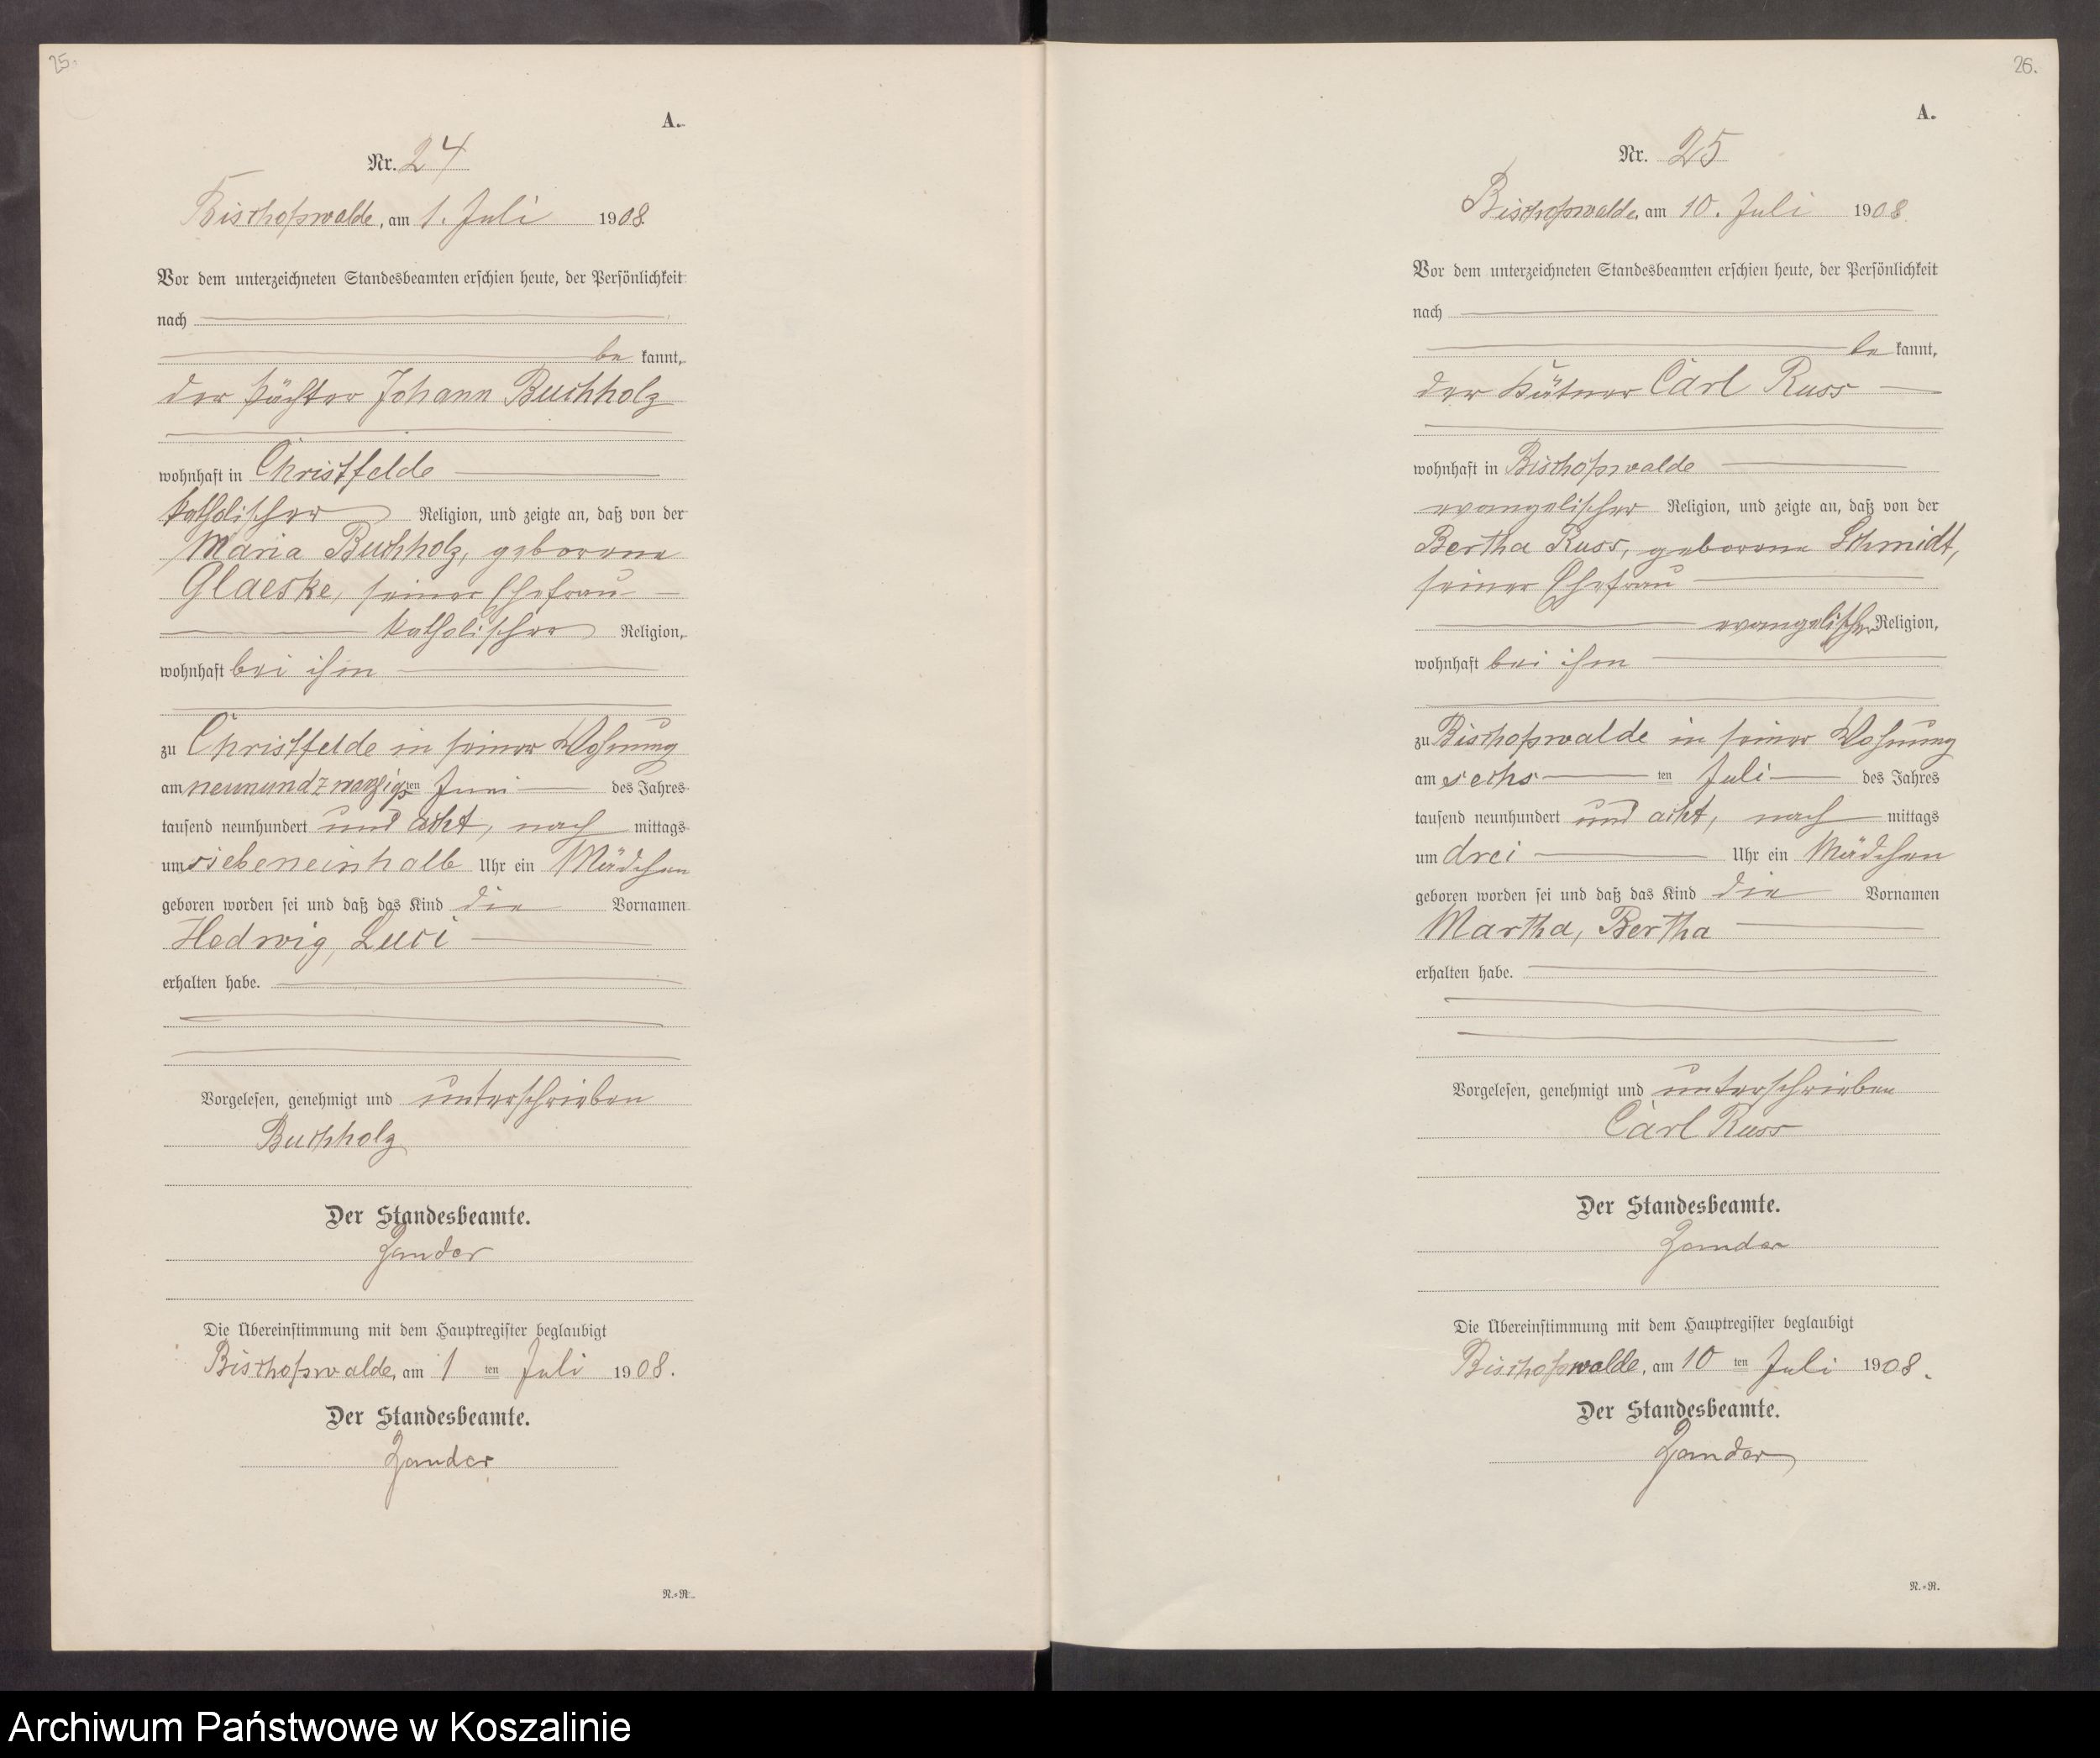 25.
A.
Nr. 24
Bischofswalde, am 1. Juli 1908.
Vor dem unterzeichneten Standesbeamten erschien heute, der Persönlichkeit
nach
be kannt,
der Pächter Johann Buchholz
wohnhaft in Christfelde
katholischer Religion, und zeigte an, daß von der
Maria Buchholz, geborene
Glaeske, seiner Ehefrau
katholischer Religion,
wohnhaft bei ihm
zu Christfelde in seiner Wohnung
am neunundzwanzigsten Juni des Jahres
tausend neunhundert und acht, nach mittags
um siebeneinhalb Uhr ein Mädchen
geboren worden sei und daß das Kind die Vornamen
Hedwig, Luci
erhalten habe.
Vorgelesen, genehmigt und unterschrieben
Buchholz
Der Standesbeamte.
Zander
Die Übereinstimmung mit dem Hauptregister beglaubigt
Bischofswalde, am 1 ten Juli 1908.
Der Standesbeamte.
Zander
N.=R.
26.
A.
Nr. 25
Bischofswalde, am 10. Juli 1908
Vor dem unterzeichneten Standesbeamten erschien heute, der Persönlichkeit
nach
be kannt,
der Kätner Carl Russ
wohnhaft in Bischofswalde
evangelischer Religion, und zeigte an, daß von der
Bertha Russ, geborene Schmidt,
seiner Ehefrau
evangelischer Religion,
wohnhaft bei ihm
zu Bischofswalde in seiner Wohnung
am sechs ten Juli des Jahres
tausend neunhundert und acht, nach mittags
um drei Uhr ein Mädchen
geboren worden sei und daß das Kind die Vornamen
Martha, Bertha
erhalten habe.
Vorgelesen, genehmigt und unterschrieben
Carl Russ
Der Standesbeamte.
Zander
Die Übereinstimmung mit dem Hauptregister beglaubigt
Bischofswalde, am 10 ten Juli 1908.
Der Standesbeamte.
Zander
N.=R.
Archiwum Państwowe w Koszalinie